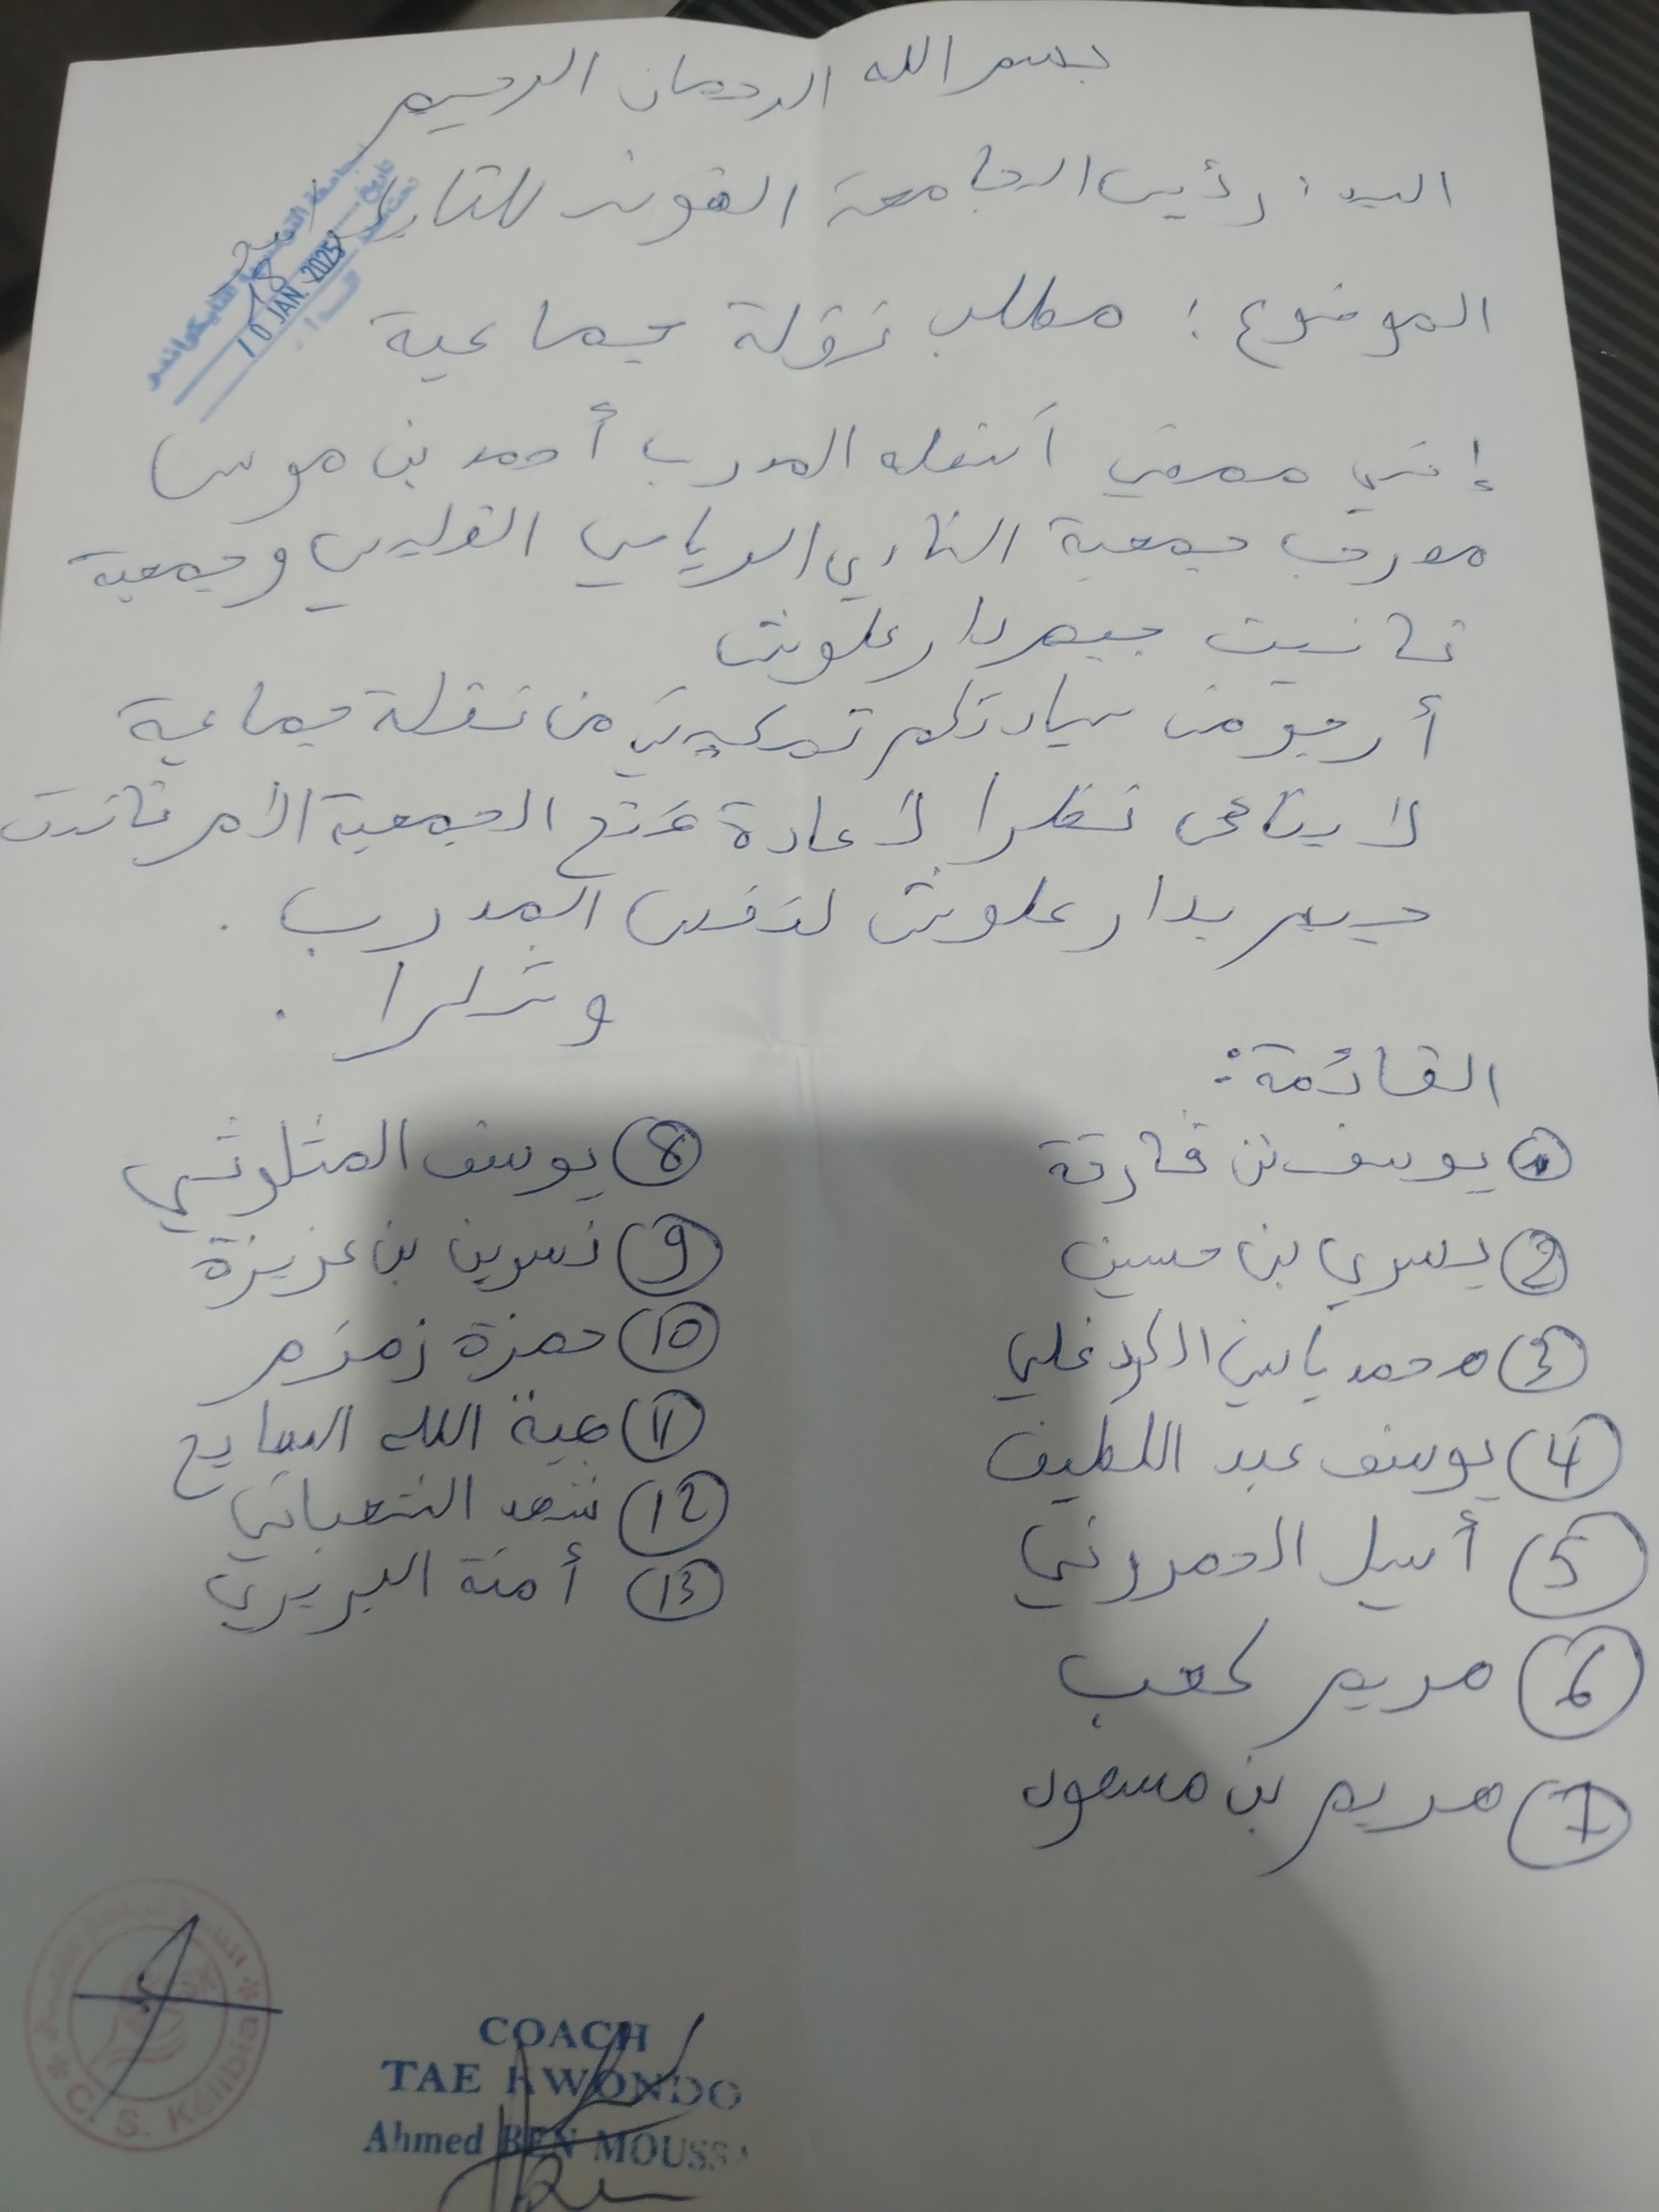 بسم الله الرحمان الرحيم
السيد: رئيس الجامعة التونسية للتايكواندو
الجامعة التونسية للتايكواندو
تاريخ
10 JAN. 2025
الموضوع: مطلب نقلة جماعية
إنني ممضي أسفله المدرب أحمد بن موسى
مدرب جمعية النادي الرياضي القليبي وجمعية
تانيت جيم بدار علوش
أرجو من سيادتكم تمكيني من نقلة جماعية
لا يتاعى نظرا لأعادة فتح الجمعية الأم تانيت
جيم بدار علوش لنفس المدرب.
وشكرا.
القائمة:
1 يوسف بن قارقة
2 يسري بن حسين
3 محمد ياسين الكردغلي
4 يوسف عبد اللطيف
5 أسيل الحمروني
6 مريم كعب
7 مريم بن مسعود
8 يوسف المثلوثي
9 نسرين بن عزيزة
10 حمزة زمزم
11 هبة الله السايح
12 شهد الشعباني
13 أمنة البريري
C. S. Kélibia
COACH
TAE KWONDO
Ahmed BEN MOUSSA